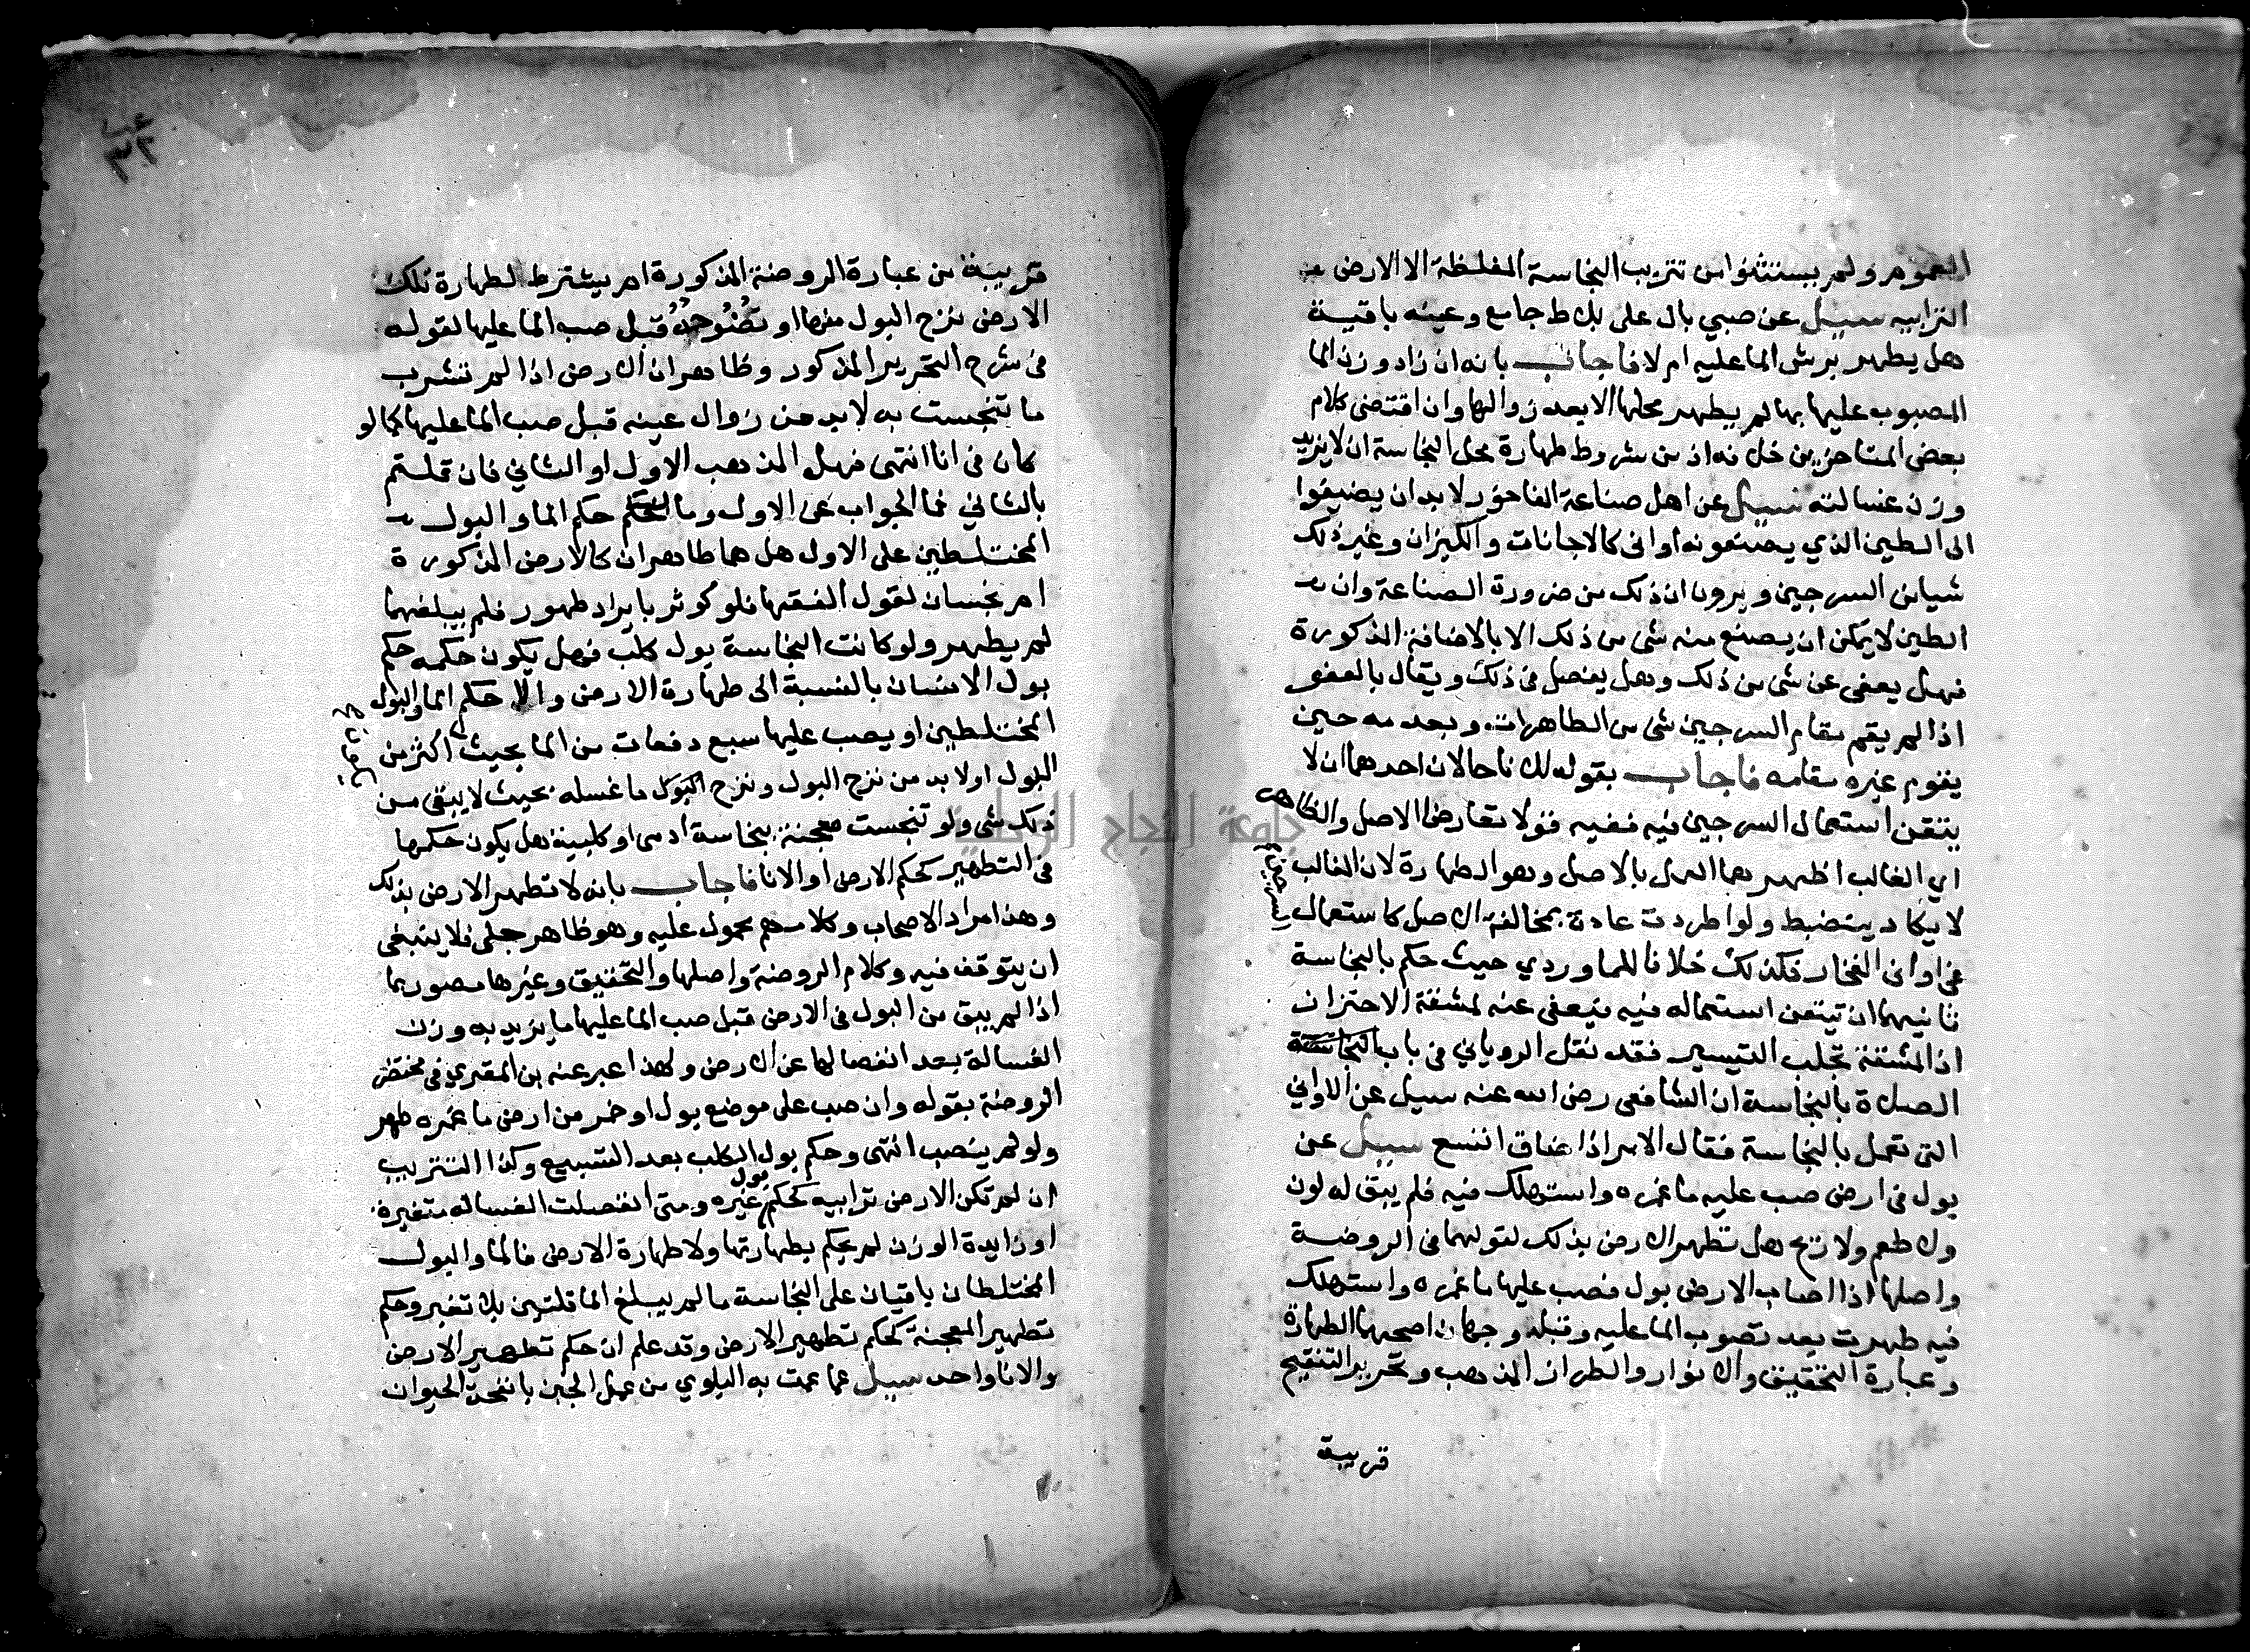 العموم ولم يستثنوا من تتريب النجاسة المغلظة الا الارض
الترابيه سيل عن صبي بال على بلاط جامع وعينه باقية
هل يطهر برش الما عليه ام لا فاجاب بانه ان زاد وزن الما
المصبوب عليها بها لم يطهر محلها الا بعد زوالها وان اقتضى كلام
بعض المتاخرين خلافه اذ من شروط طهارة محل النجاسة ان لا يزيد
وزن غسالته سيل عن اهل صناعة الفاخور لا بد ان يضيفوا
الى الطين الذي يصنعونه اواني كالاجانات والكيزان وغير ذلك
شيا من السرجين ويرون ان ذلك من ضرورة الصناعة وان
الطين لا يمكن ان يصنع منه شي من ذلك الا بالاضافة المذكورة
فهل يعفى عن شي من ذلك وهل يفصل في ذلك ويقال بالعفو
اذا لم يقم مقام السرجين شي من الطاهرات وبعدمه حين
يقوم غيره مقامه فاجاب بقوله لك نا حالان احدهما ان لا
يتقن استعمال السرجين فيه ففيه قولا تعارض الاصل والظاهر
اي الغالب اظهرهما العمل بالاصل وهو الطهارة لان الغالب
لا يكاد ينضبط ولو اطردت عادة بمخالفة الاصل كاستعمال
السرجين
في اواني الفخار فكذلك خلافا للماوردي حيث حكم بالنجاسة
ثانيهما ان تيقن استعماله فيه فيعفى عنه لمشقة الاحتراز
اذ المشقة تجلب التيسير فقد نقل الروياني في باب
الصلاة بالنجاسة ان الشافعي رضي الله عنه سيل عن الاواني
التي تعمل بالنجاسة فقال الامر اذا ضاق اتسع سيل عن
بول في ارض صب عليه ما غمره واستهلك فيه فلم يبق له لون
ولا طعم ولا ريح هل تطهر الارض بذلك لقولهما في الروضة
واصلها اذا اصاب الارض بول فصب عليها ما غمره واستهلك
فيه طهرت بعد نضوب الما عليه وقبله وجهان اصحهما الطهارة
وعبارة التحقيق والانوار والطراز المذهب وتحرير التنقيح
قريبة
قريبة من عبارة الروضة المذكورة ام يشترط لطهارة تلك
الارض نزح البول منها او نضوحه قبل صب الما عليها لقوله
في شرح التحرير المذكور وظاهر ان الارض اذا لم تشرب
ما تنجست به لا بد من زوال عينه قبل صب الما عليها كما لو
كان في انا انتهى فهل المذهب الاول او الثاني فان قلتم
بالثاني فما الجواب عن الاول وما حكم الما والبول
المختلطين على الاول هل هما طاهران كالارض المذكورة
ام نجسان لقول الفقها فلو كوثر بايراد طهور فلم يبلغهما
لم يطهر ولو كانت النجاسة بول كلب فهل يكون حكمه حكم
بول الانسان بالنسبة الى طهارة الارض والا حكم الما والبول
المختلطين او يصب عليها سبع دفعات من الما بحيث اكثر من
البول اولا بد من نزح البول ونزح البول ما غسله بحيث لا يبقى من
ذلك شي ولو تنجست معجنة بنجاسة ادمي او كلبية هل يكون حكمها
في التطهير كحكم الارض او الانا فاجاب بانه لا تطهر الارض بذلك
وهذا مراد الاصحاب وكلامهم محمول عليه وهو ظاهر جلي فلا ينبغي
ان يتوقف فيه وكلام الروضة واصلها والتحقيق وغيرها مصور بما
اذا لم يبق من البول في الارض قبل صب الما عليها ما يزيد به وزن
الغسالة بعد انفصالها عن الارض ولهذا عبر عنه بن المقري في مختصر
الروضة بقوله وان صب على موضع بول او خمر من ارض ما غمره طهر
ولو لم ينضب انتهى وحكم بول الكلب بعد التسبيع وكذا التتريب
ان لم تكن الارض ترابيه كحكم بول غيره ومتى انفصلت الغساله متغيرة
او زايدة الوزن لم يحكم بطهارتها ولا طهارة الارض فالما والبول
المختلطان باقيان على النجاسة ما لم يبلغ الما قلتين بلا تغير وحكم
تطهير المعجنة كحكم تطهير الارض وقد علم ان حكم تطهير الارض
والانا واحد سيل عما عمت به البلوي من عمل الجبن بانفحة الحيوان
جامعة النجاح الوطنية